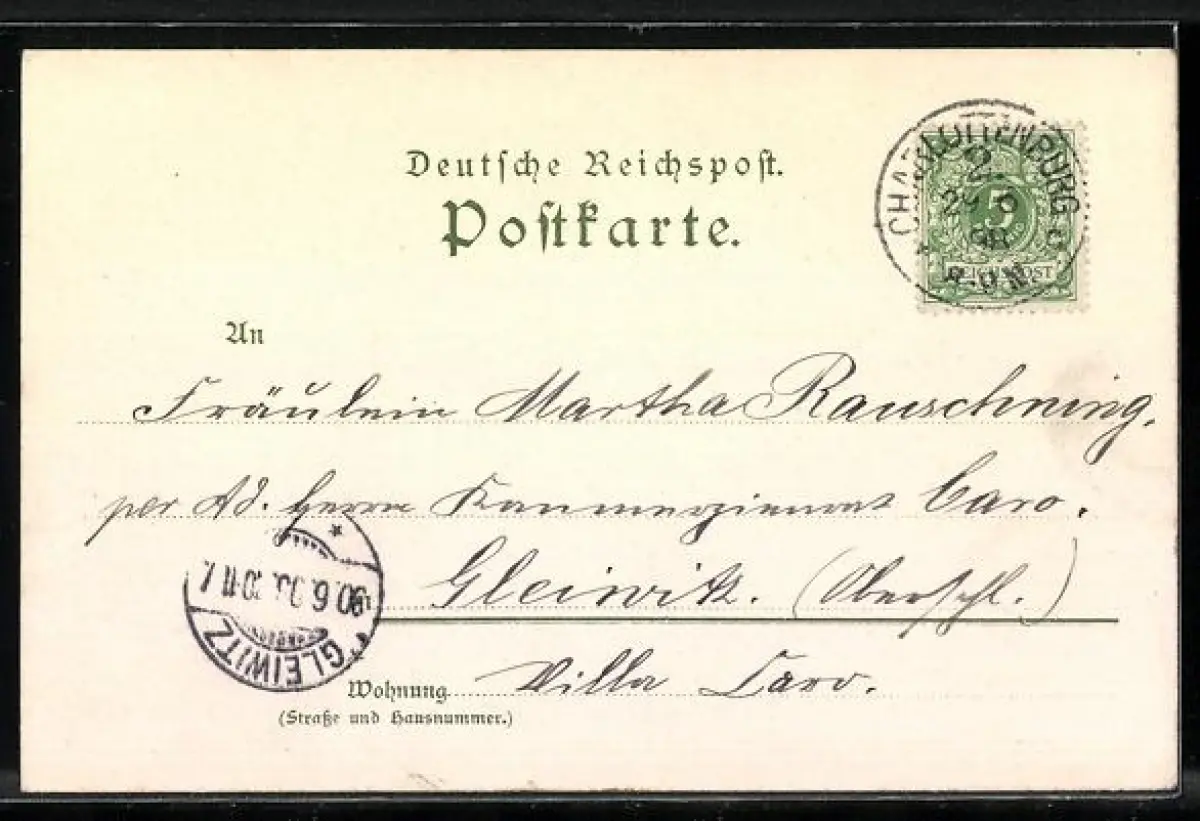 Deutsche Reichspost.
Postkarte.
CHARLOTTENBURG
2
29 6
98
8-9 N
5
REICHSPOST
An
Fräulein Martha Rauschning,
per Ad. Herrn Kommerzienrat Caro.
Gleiwitz. (Oberschl.)
GLEIWITZ
Wohnung Villa Caro.
(Straße und Hausnummer.)